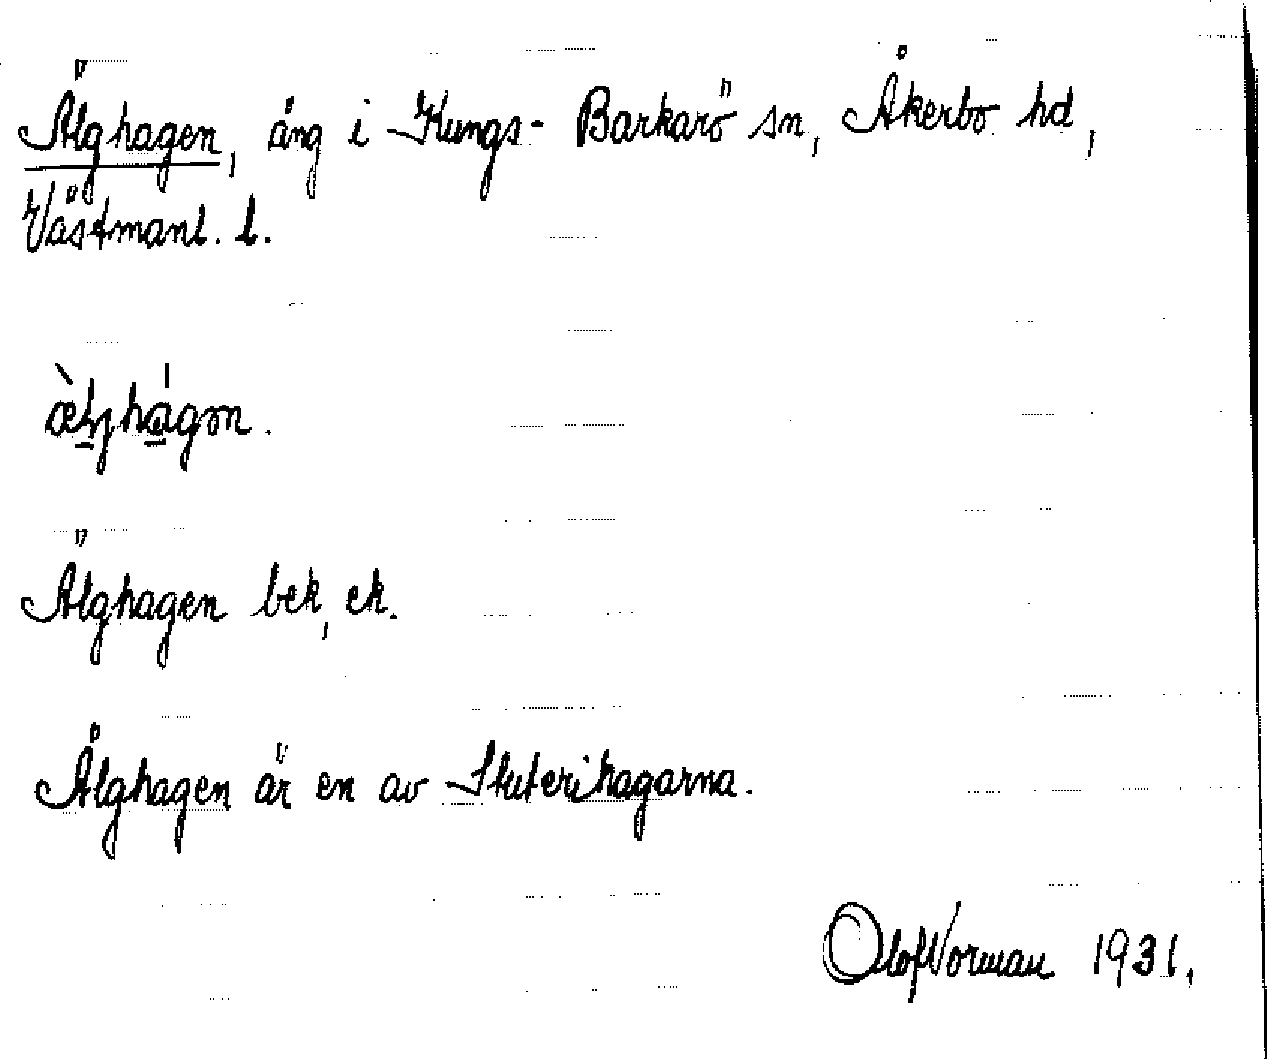 Älghagen, äng i Kungs-Barkarö sn, Åkerbo hd,
Västmanl. l.
Älghagen bek, ek.
Älghagen är en av Stuterihagarna.
Olof Norman 1931.